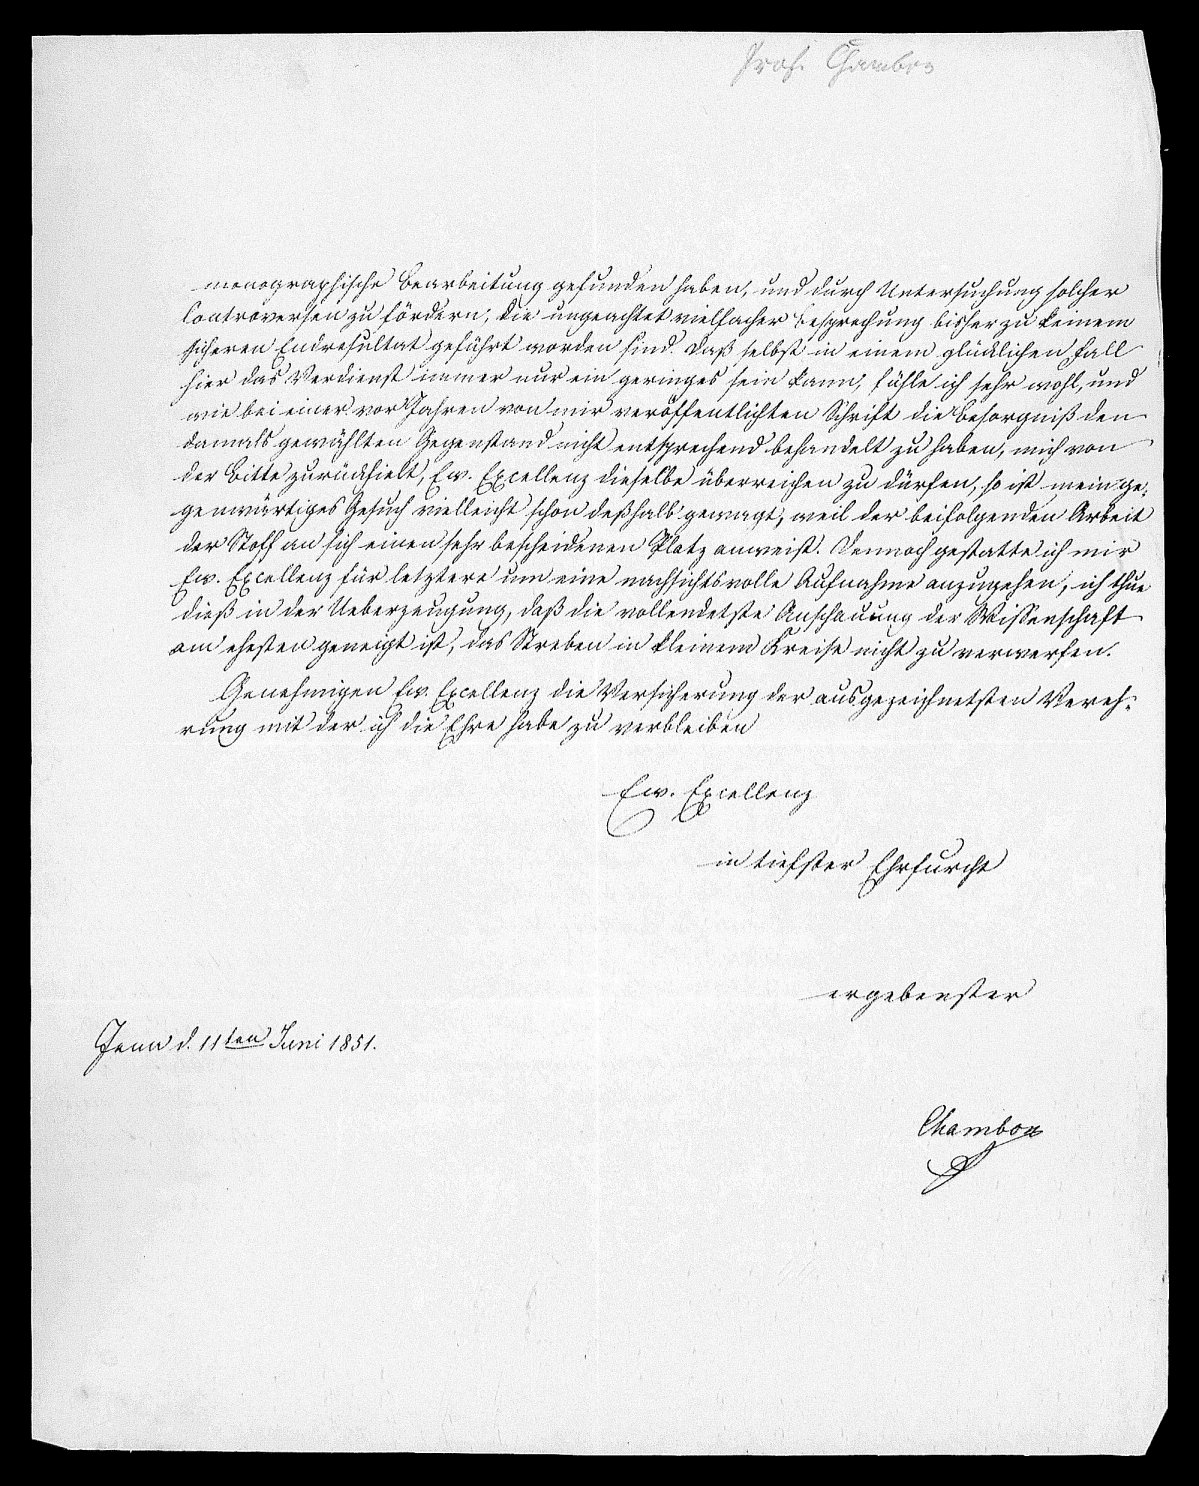 Prof. Chambon
monographische Bearbeitung gefunden haben, und durch Untersuchung solcher
Controversen zu fördern, die ungeachtet vielfacher Besprechung bisher zu keinem
sicheren Endresultat geführt worden sind. Daß selbst in einem glücklichen Fall
hier das Verdienst immer nur ein geringes sein kann, fühle ich sehr wohl, und
wie bei einer vor Jahren von mir veröffentlichten Schrift die Besorgniß den
damals gewählten Gegenstand nicht entsprechend behandelt zu haben, mich von
der Bitte zurückhielt, Ew. Excellenz dieselbe überreichen zu dürfen, so ist mein ge-
genwärtiges Gesuch vielleicht schon deßhalb gewagt, weil der beifolgenden Arbeit
der Stoff an sich einen sehr bescheidenen Platz anweist. Dennoch gestatte ich mir
Ew. Excellenz für letztere um eine nachsichtsvolle Aufnahme anzugehen, ich thue
dieß in der Ueberzeugung, daß die vollendetste Anschauung der Wissenschaft
am ehesten geneigt ist, das Streben in kleinem Kreise nicht zu verwerfen.
Genehmigen Ew. Excellenz die Versicherung der ausgezeichnetsten Vereh-
rung mit der ich die Ehre habe zu verbleiben
Ew. Excellenz
in tiefster Ehrfurcht
ergebenster
Jena d. 11ten Juni 1851.
Chambon